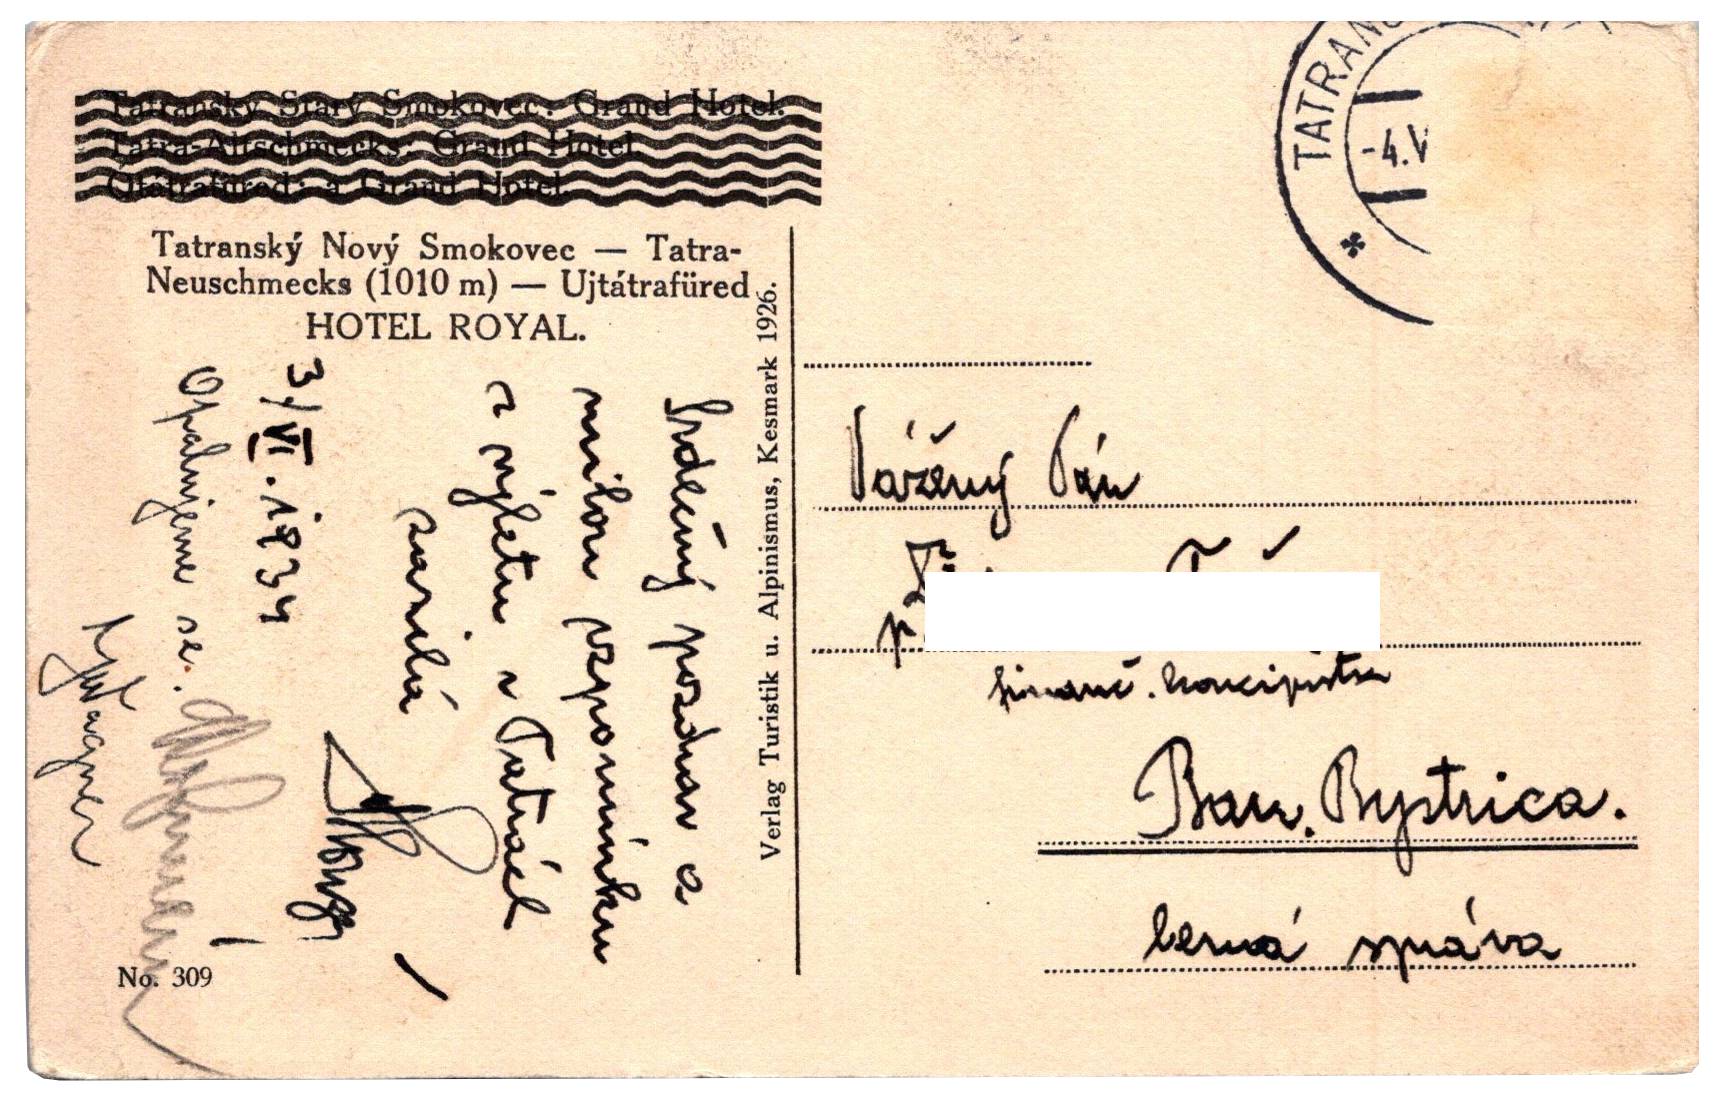 Tatranský Starý Smokovec: Grand Hotel.
Tatra-Altschmecks: Grand Hotel
Ótátrafüred: a Grand Hotel.
Tatranský Nový Smokovec — Tatra-
Neuschmecks (1010 m) — Ujtátrafüred
HOTEL ROYAL.
Srdečný pozdrav a
milou vzpomínku
z výletu v Tatrách
zasílá
3/VI. 1934
Opalujeme se.
Wagner
No. 309
Verlag Turistik u. Alpinismus, Kesmark 1926.
TATRANS
-4.V
Vážený Pán
p
financ. koncipista
Ban. Bystrica.
berná správa